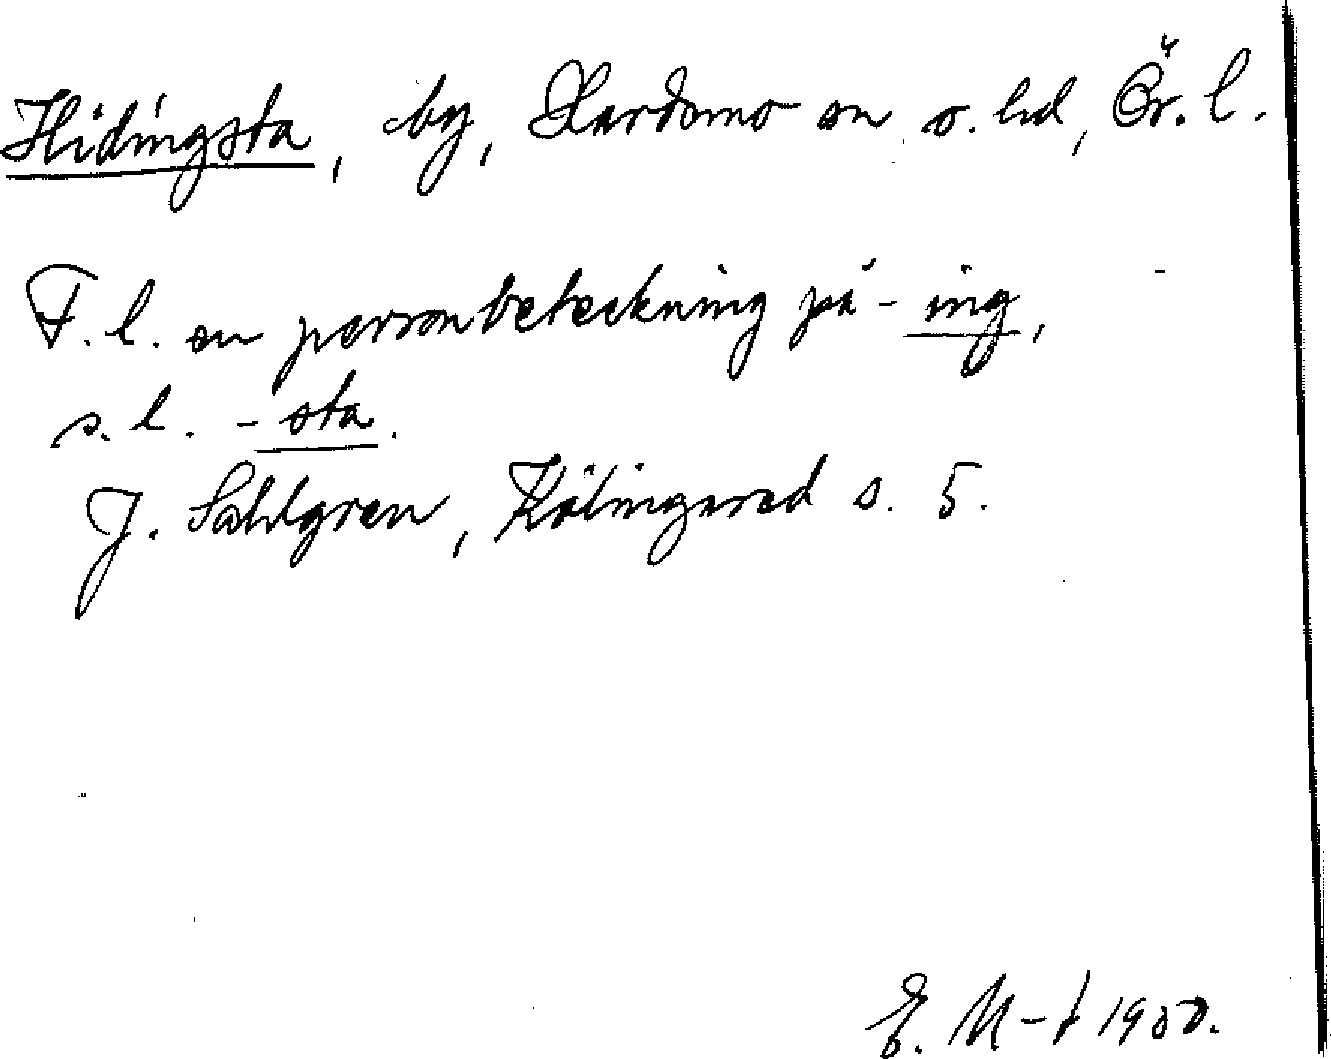 Hidingsta, by, Hardemo sn o. hd, Ör. l.
F. l. en personbeteckning på - ing,
s. l. - sta.
J. Sahlgren, Kölingared s. 5.
E. M-t 1950.